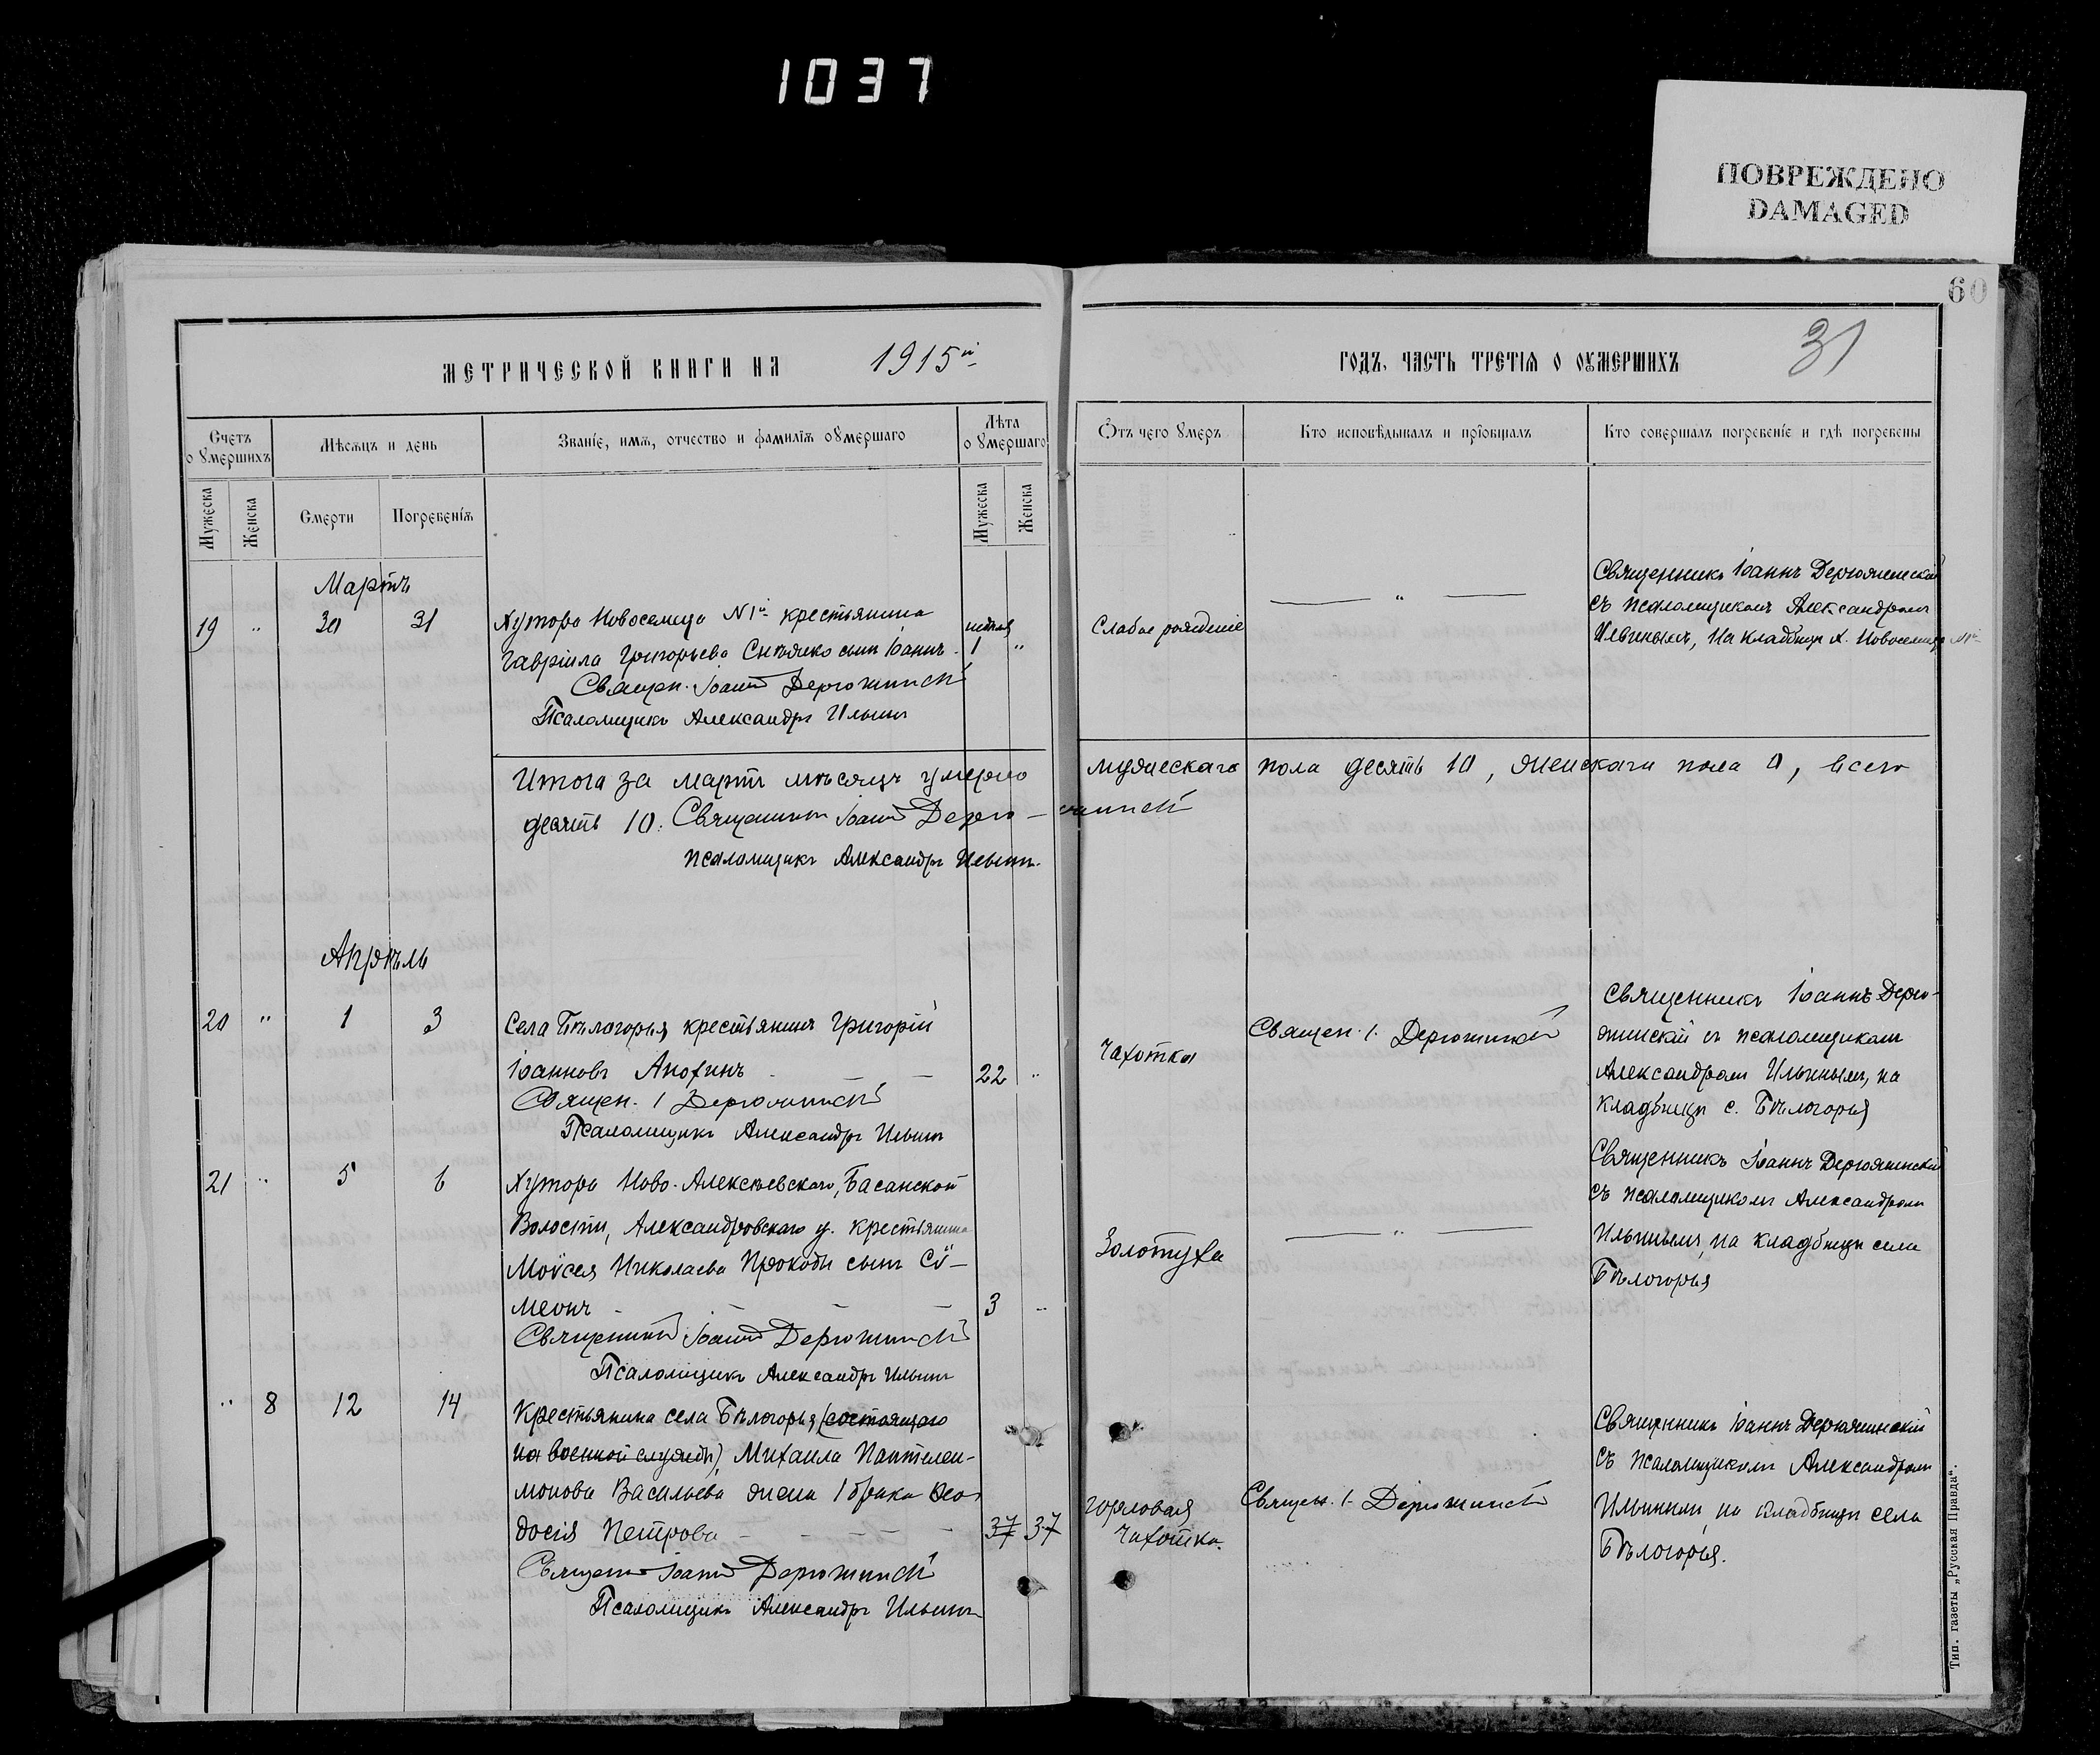 1037
ПОВРЕЖДЕНО
DAMAGED
60
31
МЕТРИЧЕСКОЙ КНИГИ НА 1915й
ГОДЪ, ЧАСТЬ ТРЕТІЯ О ОУМЕРШИХЪ
Счетъ оумершихъ
Мѣсяцъ и день
Званіе, имя, отчество и фамилія оумершаго
Лѣта оумершаго
Отъ чего умеръ
Кто исповѣдывалъ и пріобщалъ
Кто совершалъ погребеніе и гдѣ погребены
Мужеска
Женска
Смерти
Погребенія
Мужеска
Женска
Мартъ
19 " 30 31
Хутора Новоселица N 1й крестьянина
Гавріила Григорьева сынъ Іоаннъ
недѣля
1 "
Священ. Іоаннъ Дерюжинскій
Псаломщикъ Александръ Ильинъ
Слабое рожденіе
"
Священникъ Іоаннъ Дерюжинскій
съ псаломщикомъ Александромъ
Ильинымъ, на кладбищѣ х. Новоселица N 1й
Итого за мартъ мѣсяцъ умерло
мужескаго пола десять 10, женскаго пола 0, всего
десять 10. Священникъ Іоаннъ Дерюжинскій
псаломщикъ Александръ Ильинъ.
Апрѣль
20 " 1 3
Села Бѣлогорья крестьянинъ Григорій
Іоанновъ Анохинъ
22 "
Священ. І Дерюжинскій
Псаломщикъ Александръ Ильинъ
Чахотка
Священ. І. Дерюжинскій
Священникъ Іоаннъ Дерю-
жинскій съ псаломщикомъ
Александромъ Ильинымъ, на
кладбищѣ с. Бѣлогорья
21 " 5 6
Хутора Ново-Алексѣевскаго, Басанской
Волости, Александровскаго у. крестьянина
Моѵсея Николаева Прокоды сынъ Сѵ-
меонъ
3 "
Священникъ Іоаннъ Дерюжинскій
Псаломщикъ Александръ Ильинъ
Золотуха
"
Священникъ Іоаннъ Дерюжинскій
съ псаломщикомъ Александромъ
Ильинымъ, на кладбищѣ села
Бѣлогорья
" 8 12 14
Крестьянина села Бѣлогорья, (состоящаго
на военной службѣ), Михаила Пантелеи-
монова Васильева жена 1 брака Ѳео-
досія Петрова
37 37
Священ Іоаннъ Дерюжинскій
Псаломщикъ Александръ Ильинъ
Горловая
чахотка.
Священ. І. Дерюжинскій
Священникъ Іоаннъ Дерюжинскій
съ псаломщикомъ Александромъ
Ильинымъ, на кладбищѣ села
Бѣлогорья.
Тип. газеты „Русская Правда“.